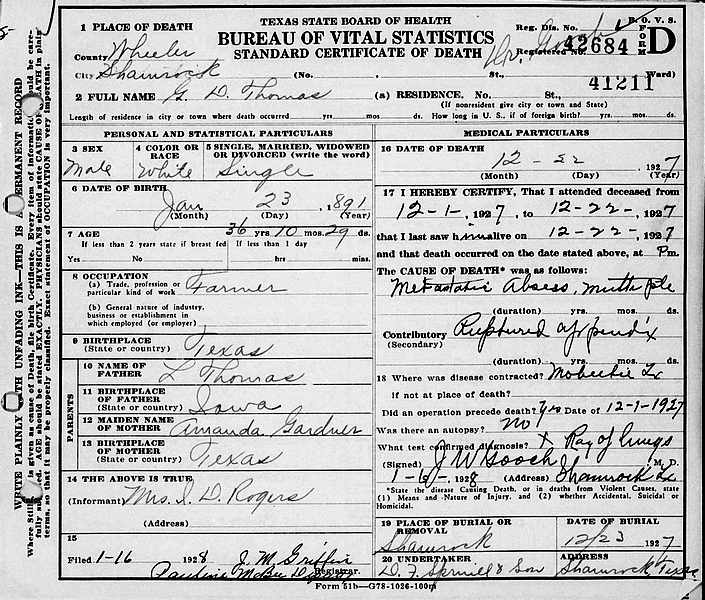 TEXAS STATE BOARD OF HEALTH
BUREAU OF VITAL STATISTICS
STANDARD CERTIFICATE OF DEATH
B. O. V. S.
FORM D
Reg. Dis. No.
Registered No. 42684
41211
1 PLACE OF DEATH
County Wheeler
City Shamrock (No. St., Ward)
2 FULL NAME G. D. Thomas (a) RESIDENCE, No. St.,
(If nonresident give city or town and State)
Length of residence in city or town where death occurred yrs. mos. ds. How long in U. S., if of foreign birth? yrs. mos. ds.
PERSONAL AND STATISTICAL PARTICULARS
3 SEX 4 COLOR OR RACE 5 SINGLE, MARRIED, WIDOWED OR DIVORCED (write the word)
Male White Single
6 DATE OF BIRTH
Jan 23 1891
(Month) (Day) (Year)
7 AGE 36 yrs 10 mos. 29 ds.
If less than 2 years state if breast fed If less than 1 day
Yes No hrs min.
8 OCCUPATION
(a) Trade, profession or particular kind of work Farmer
(b) General nature of industry,
business or establishment in
which employed (or employer)
9 BIRTHPLACE
(State or country) Texas
PARENTS
10 NAME OF FATHER L Thomas
11 BIRTHPLACE OF FATHER
(State or country) Iowa
12 MAIDEN NAME OF MOTHER Amanda Gardner
13 BIRTHPLACE OF MOTHER
(State or country) Texas
14 THE ABOVE IS TRUE
(Informant) Mrs. I. D. Rogers
(Address)
15
Filed 1-16 1928 J. M. Griffin
Pauline Registrar.
MEDICAL PARTICULARS
16 DATE OF DEATH
12-22 1927
(Month) (Day) (Year)
17 I HEREBY CERTIFY, That I attended deceased from
12-1-, 1927, to 12-22-, 1927
that I last saw him alive on 12-22-, 1927
and that death occurred on the date stated above, at P m.
The CAUSE OF DEATH* was as follows:
Metastatic Absess, multiple
(duration) yrs. mos. ds.
Contributory Ruptured appendix
(Secondary)
(duration) yrs. mos. ds.
18 Where was disease contracted? Mobeetie Tx
If not at place of death?
Did an operation precede death? Yes Date of 12-1-1927
Was there an autopsy? no
What test confirmed diagnosis? X Ray of lungs
(Signed) J W Gooch M. D.
1928 (Address) Shamrock Tx
*State the disease Causing Death, or in deaths from Violent Causes, state
(1) Means and Nature of Injury, and (2) whether Accidental, Suicidal or
Homicidal.
19 PLACE OF BURIAL OR REMOVAL DATE OF BURIAL
Shamrock 12/23 1927
20 UNDERTAKER ADDRESS
D. F. Spruill & Son Shamrock, Texas
Form 51b—G78-1026-100m